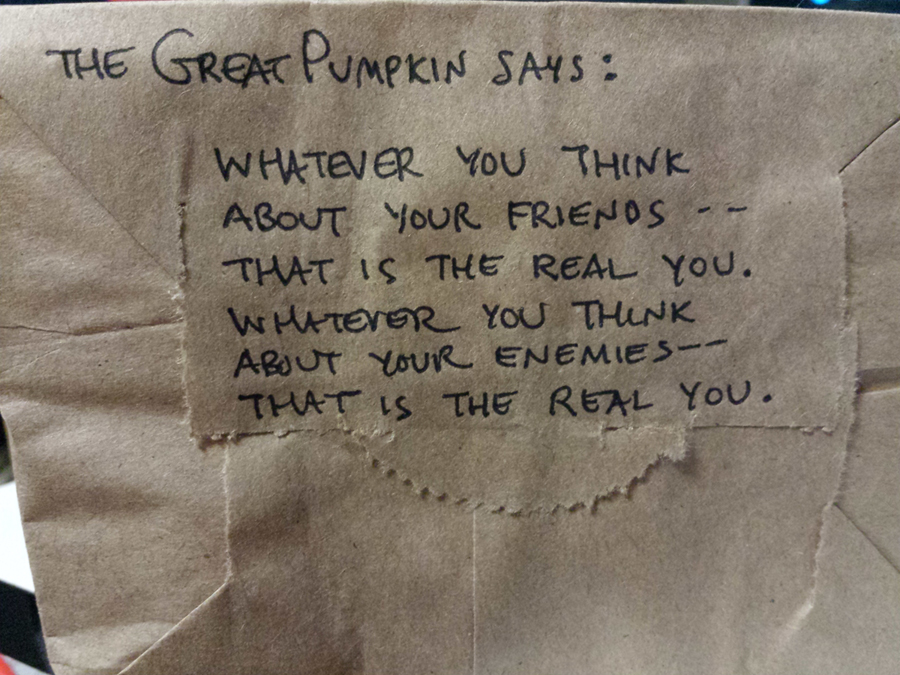 THE GREAT PUMPKIN SAYS:
WHATEVER YOU THINK
ABOUT YOUR FRIENDS --
THAT IS THE REAL YOU.
WHATEVER YOU THINK
ABOUT YOUR ENEMIES--
THAT IS THE REAL YOU.